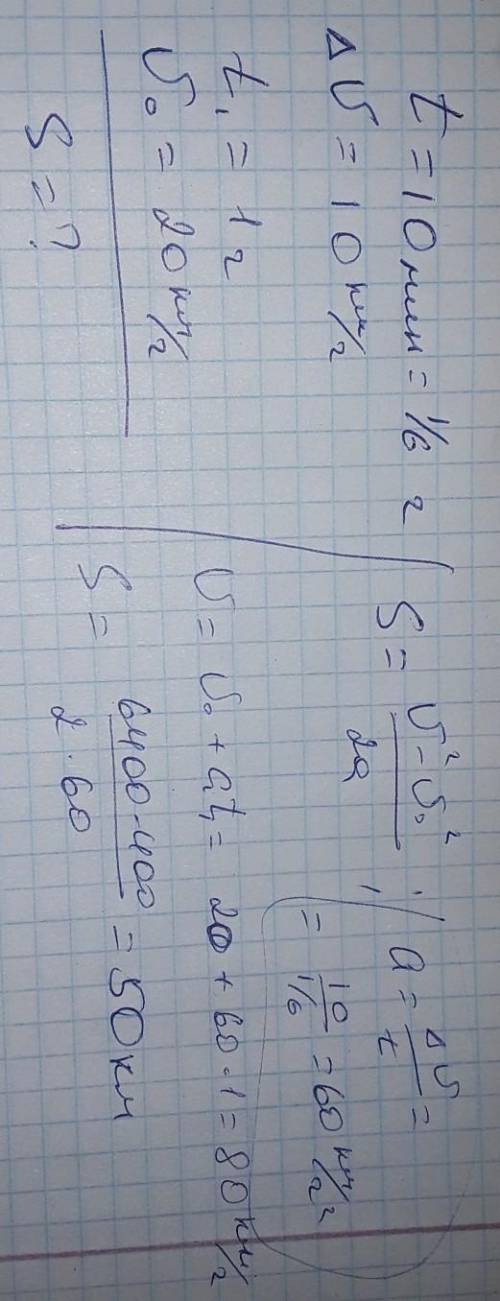 t = 10 мин = 1/6 ч
ΔU = 10 км/ч
t₁ = 1 ч
U₀ = 20 км/ч
S = ?
S = (U² - U₀²)/2a ; a = ΔU/t =
= 10/(1/6) = 60 км/ч²
U = U₀ + at₁ = 20 + 60 · 1 = 80 км/ч
S = (6400 - 400)/(2 · 60) = 50 км